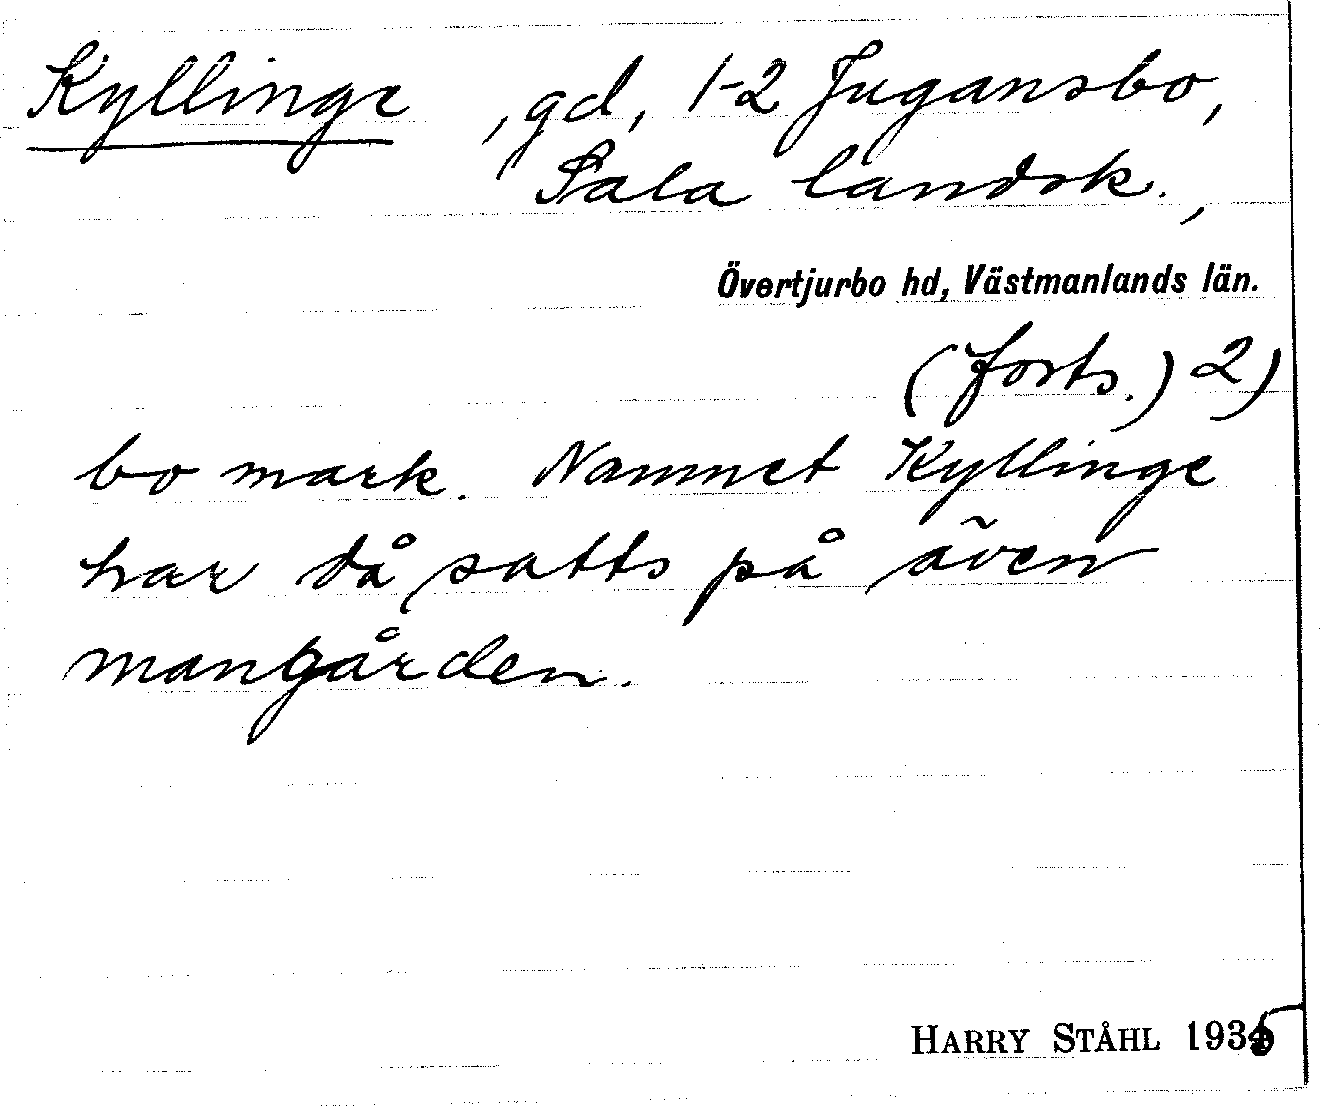 Kyllinge, gd, 1-2 Jugansbo,
Sala landsk.,
Övertjurbo hd, Västmanlands län.
(forts.) 2)
bo mark. Namnet Kyllinge
har då satts på även
mangården.
HARRY STÅHL 1935